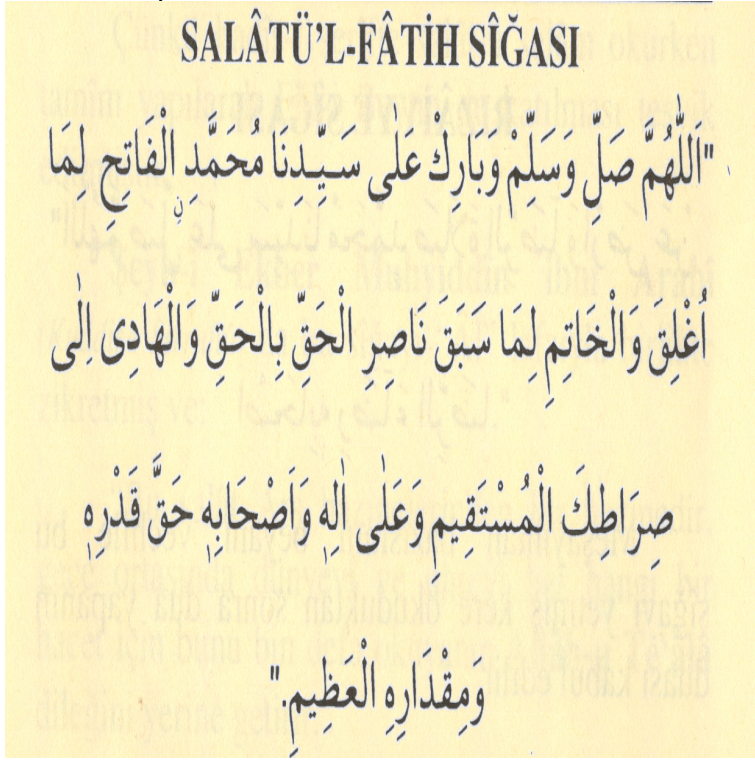 SALÂTÜ'L-FÂTİH SÎĞASI
"اَللّٰهُمَّ صَلِّ وَسَلِّمْ وَبَارِكْ عَلٰى سَيِّدِنَا مُحَمَّدٍ نِ الْفَاتِحِ لِمَا
اُغْلِقَ وَالْخَاتِمِ لِمَا سَبَقَ نَاصِرِ الْحَقِّ بِالْحَقِّ وَالْهَادِى اِلٰى
صِرَاطِكَ الْمُسْتَقِيمِ وَعَلٰى اٰلِهٖ وَاَصْحَابِهٖ حَقَّ قَدْرِهٖ
وَمِقْدَارِهِ الْعَظِيمِ."